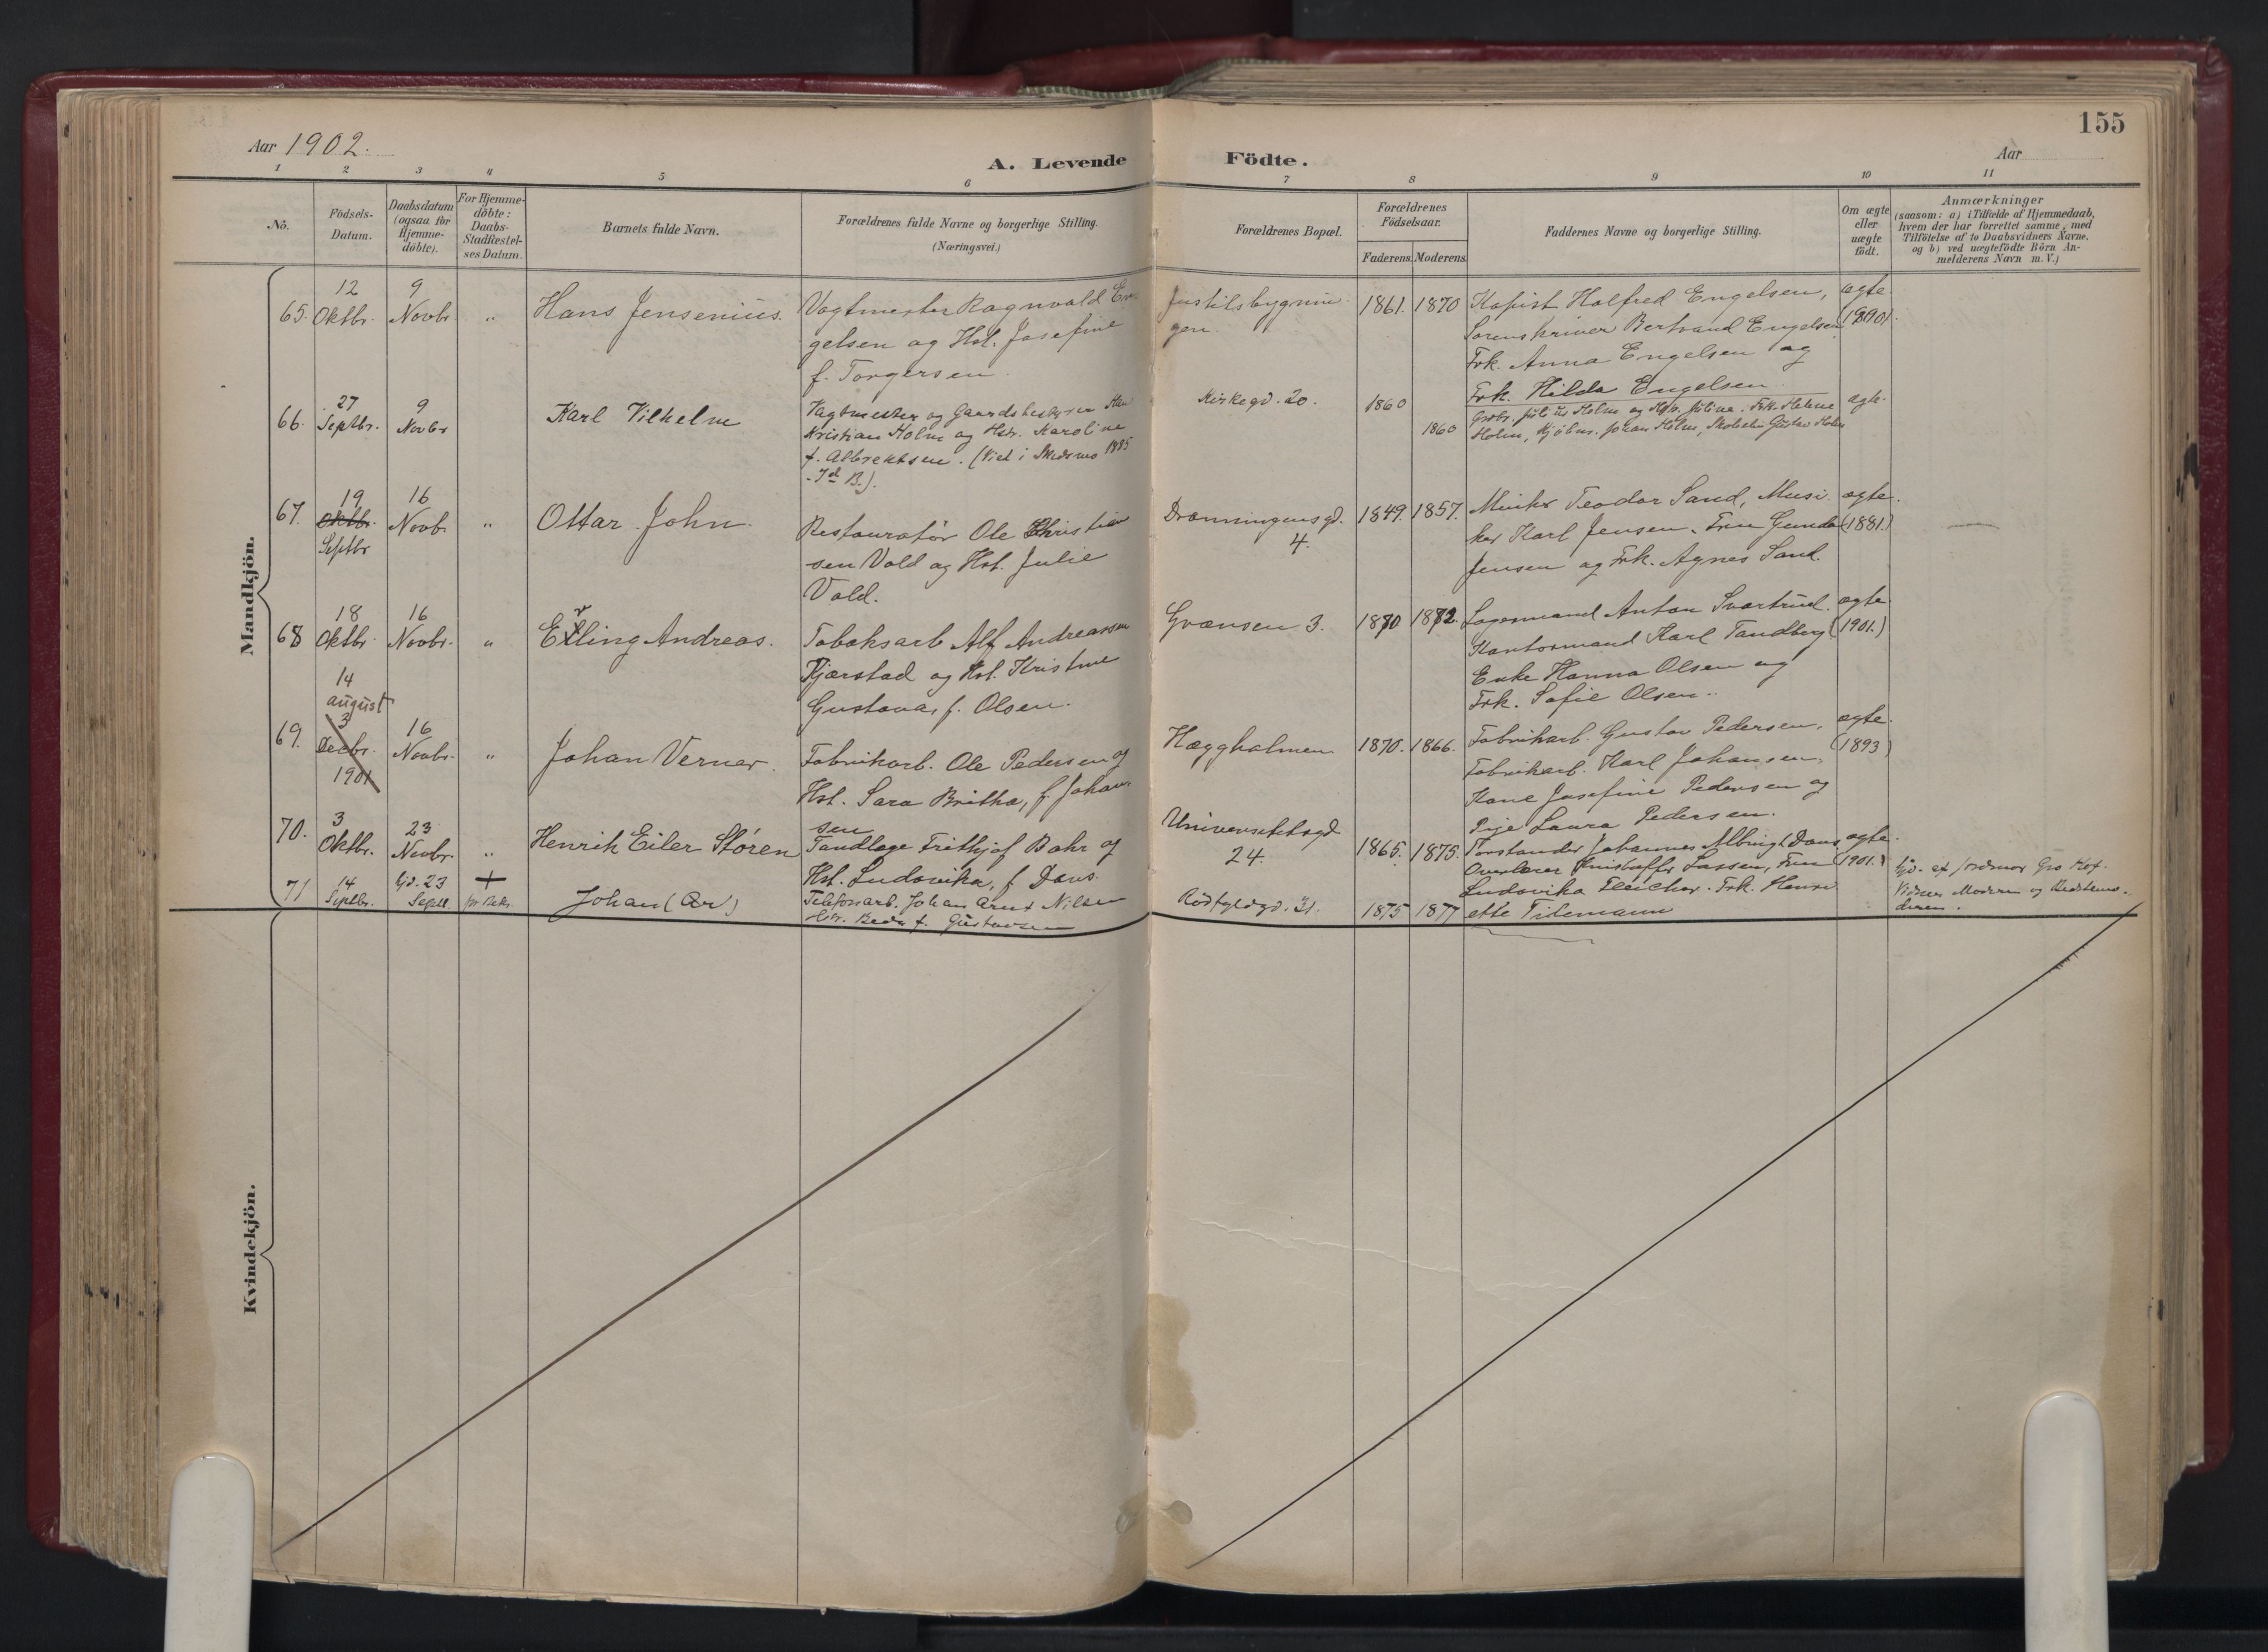 155
Aar 1902.
Aar
A. Levende Födte.
1 2 3 4 5 6 7 8 9 10 11
No.
Födsels-
Datum.
Daabsdatum
(ogsaa for
Hjemme-
döbte).
For Hjemme-
döbte:
Daabs-
Stadfæstel-
ses Datum.
Barnets fulde Navn.
Forældrenes fulde Navne og borgerlige Stilling.
(Næringsvei.)
Forældrenes Bopæl.
Forældrenes
Födselsaar.
Faderens. Moderens.
Faddernes Navne og borgerlige Stilling.
Om ægte
eller
uægte
födt.
Anmærkninger
(saasom: a) i Tilfælde af Hjemmedaab,
hvem der har forrettet samme, med
Tilföielse af to Daabsvidners Navne,
og b) ved uægtefödte Börn An-
melderens Navn m. V.)
Mandkjön.
65.
12
Oktbr.
9
Novbr.
"
Hans Jensenius.
Vagtmester Ragnvald En-
gelsen og Hst. Josefine
f. Torgersen.
Justitsbygnin-
gen.
1861. 1870
Kopist Halfred Engelsen,
Sorenskriver Bertrand Engelsen
Frk. Anna Engelsen og
Frk. Hilda Engelsen.
ægte.
66.
27
Septbr.
9
Novbr
Karl Vilhelm
Vagtmester og Gaardsbestyrer
Kristian Holm og Hstr. Karoline
f. Albrektsen. (Viet i Skedsmo 1885
Kirkegd. 20.
1860
1860
Julius Holm og Jùline. Frk. Helene
Holm, Johan Holm, Gustav Holm
ægte.
67.
19
Oktbr.
Septbr
16
Novb.
"
Ottar John.
Restauratör Ole Christian
sen Vold og Hst. Julie
Vold.
Dronningensgd.
4.
1849. 1857.
Teodor Sand, Musi-
ker Karl Jensen. Frue Gunda
Jensen og Frk. Agnes Sand.
ægte.
(1881.)
68
18
Oktbr.
16
Novbr.
"
Erling Andreas.
Tobaksarb Alf Andreassen
Kjærstad og Hst. Kristine
Gustava, f. Olsen.
Grænsen 3.
1870 1872.
Lagermand Anton Svartrud.
Kontormand Karl Tandberg
Enke Hanna Olsen og
Frk. Sofie Olsen.
ægte
(1901.)
69.
14
august
3
Decbr.
1901
16
Novbr.
"
Johan Verner.
Fabrikarb. Ole Pedersen og
Hst. Sara Britha, f. Johan-
sen
Hæggholmen
1870. 1866.
Fabrikarb. Gustav Pedersen,
Fabrikarb. Karl Johansen,
Kone Josefine Pedersen og
Pige Laura Pedersen.
ægte.
(1893)
70.
3
Oktbr.
23
Novbr.
"
Henrik Eiler Stören
Tandlæge Frithjof Bahr og
Hst. Ludovika, f. Daus.
Universitetsgd.
24.
1865. 1875.
Forstander Johannes Daus
Overlærer Kristoffer Lassen, Frue
Ludovika Fleicher. Frk. Henri-
ette Tidemann
ægte.
(1901.)
71
14
Septbr.
Hjd. 23
Septbr.
+
Johan (Ar)
Telefonarb. Johan Arnt Nilsen
Hstr. Beda f. Gustavsen
Rödfyldgd. 21.
1875 1877
Hjd. af Jordmor Gro Hof.
Vidner Moderen og Bedstemo-
deren.
Kvindekjön.